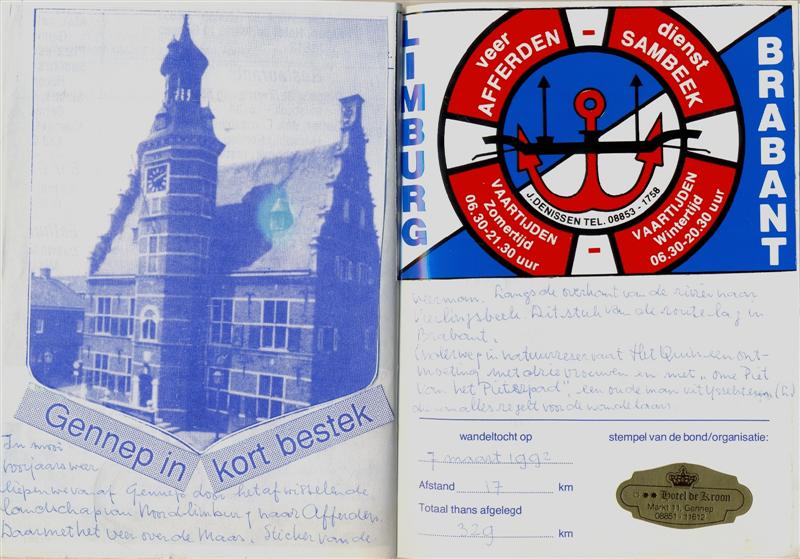 Gennep in kort bestek
In mooi
voorjaarsweer
liepen we vanaf Gennep door het afwisselende
landschap van Noordlimburg naar Afferden.
Daar met het veer over de Maas. Sticker van de
LIMBURG
veer AFFERDEN - dienst SAMBEEK
BRABANT
J. DENISSEN TEL. 08853 - 1758
VAARTIJDEN
Zomertijd
06.30-21.30 uur
-
VAARTIJDEN
Wintertijd
06.30-20.30 uur
veerman. Langs de overkant van de rivier naar
Vierlingsbeek. Dit stuk van de route lag in
Brabant.
Onderweg in natuurreservaat Het Quin een ont-
moeting met drie vrouwen en met "ome Piet
van het Pieterpad", een oude man uit
die van alles regelt voor de wandelaars
wandeltocht op
7 maart 1992
Afstand 17 km
Totaal thans afgelegd
329 km
stempel van de bond/organisatie:
Hotel de Kroon
Markt 11, Gennep
08851 - 11612